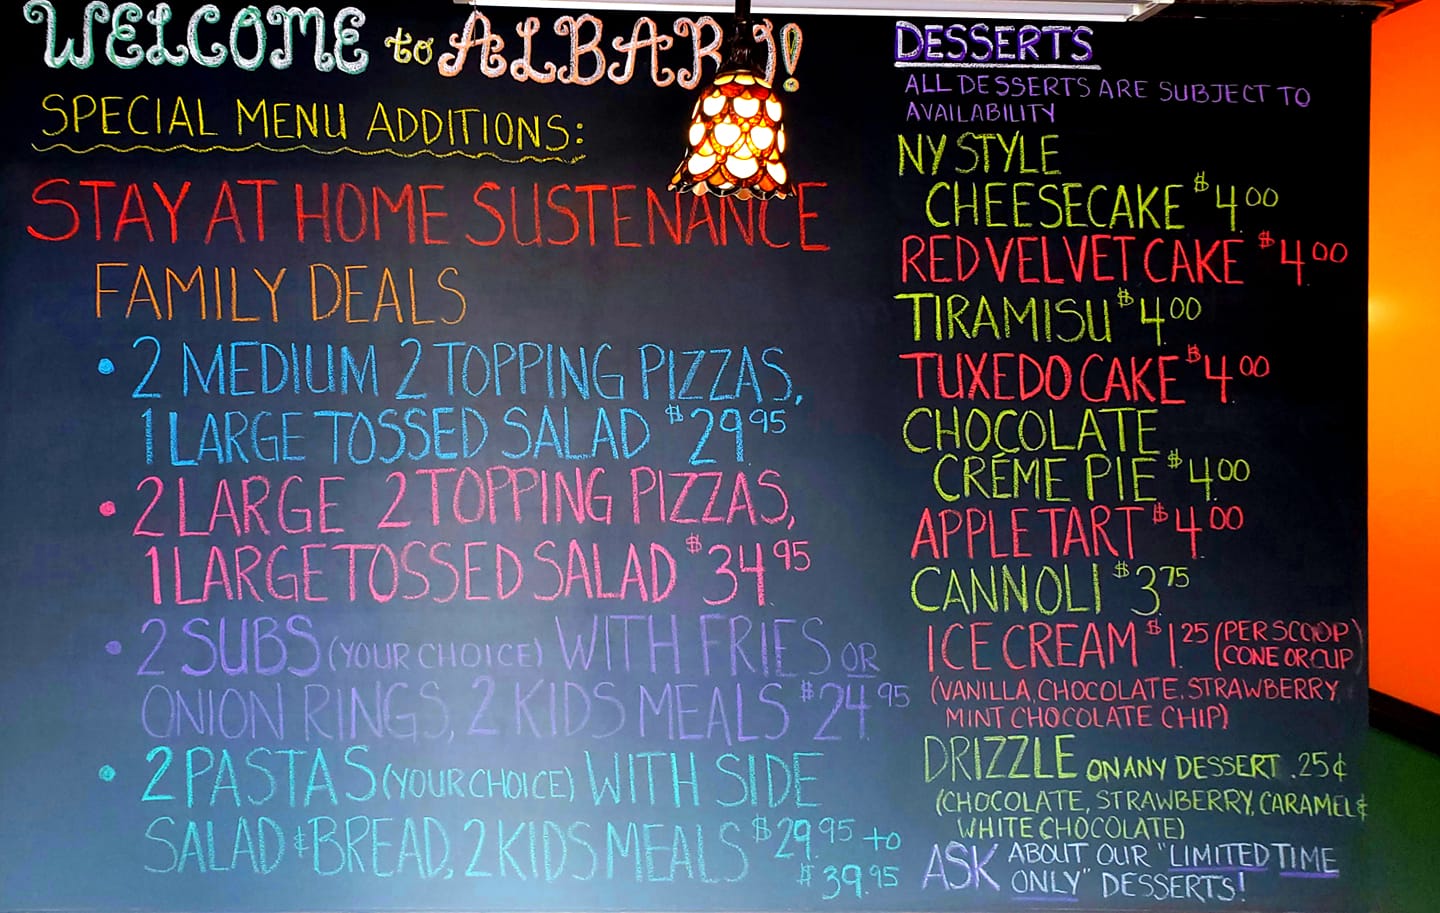 WELCOME to ALBAR
SPECIAL MENU ADDITIONS:
STAY AT HOME SUSTENANCE
FAMILY DEALS
• 2 MEDIUM 2 TOPPING PIZZAS,
1 LARGE TOSSED SALAD $29.95
• 2 LARGE 2 TOPPING PIZZAS,
1 LARGE TOSSED SALAD $34.95
• 2 SUBS (YOUR CHOICE) WITH FRIES OR
ONION RINGS, 2 KIDS MEALS $24.95
• 2 PASTAS (YOUR CHOICE) WITH SIDE
SALAD & BREAD, 2 KIDS MEALS $29.95 to
$39.95
DESSERTS
ALL DESSERTS ARE SUBJECT TO
AVAILABILITY
NY STYLE
CHEESECAKE $4.00
RED VELVET CAKE $4.00
TIRAMISU $4.00
TUXEDO CAKE $4.00
CHOCOLATE
CRÉME PIE $4.00
APPLE TART $4.00
CANNOLI $3.75
ICE CREAM $1.25 (PER SCOOP)
(CONE OR CUP
(VANILLA, CHOCOLATE, STRAWBERRY,
MINT CHOCOLATE CHIP)
DRIZZLE ON ANY DESSERT .25¢
(CHOCOLATE, STRAWBERRY, CARAMEL &
WHITE CHOCOLATE)
ASK ABOUT OUR "LIMITED TIME
ONLY" DESSERTS!